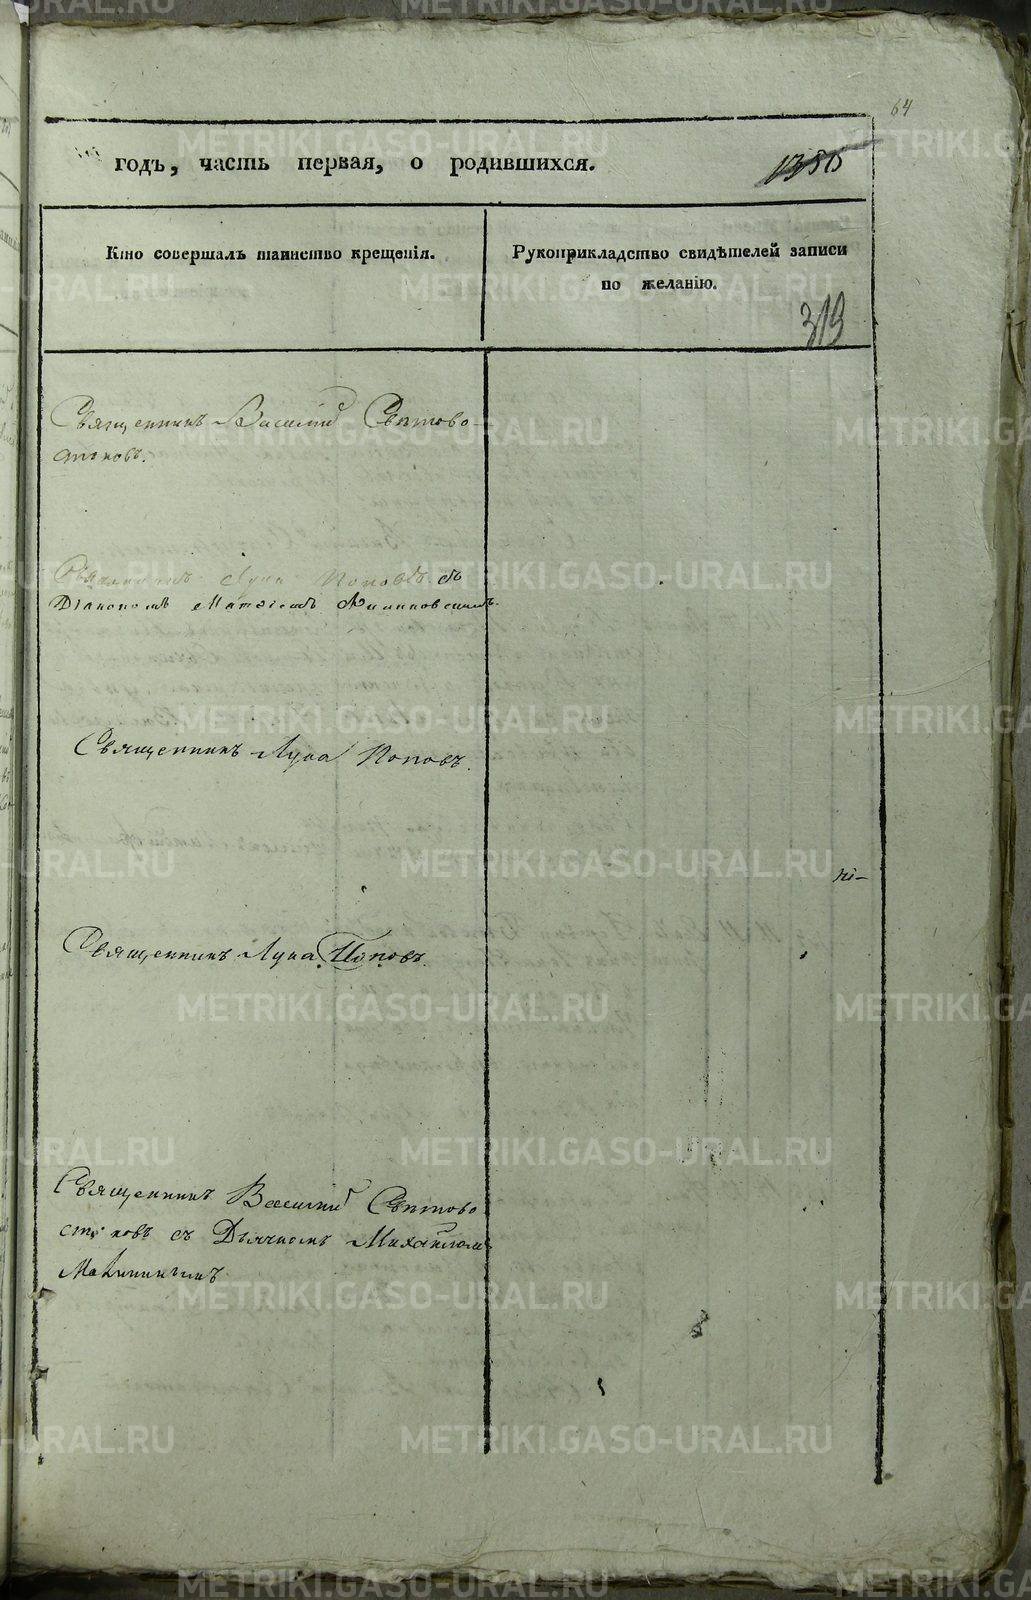 64
годъ, часть первая, о родившихся.
1386
Кто совершалъ таинство крещенія.
Рукоприкладство свидѣтелей записи
по желанію.
319
Священникъ Василій Святово-
стоковъ.
Священникъ Лука Поповъ съ
Діакономъ
Священникъ Лука Поповъ.
Священникъ Лука Поповъ.
Священникъ Василій
съ Дьячкомъ Михаиломъ
METRIKI.GASO-URAL.RU